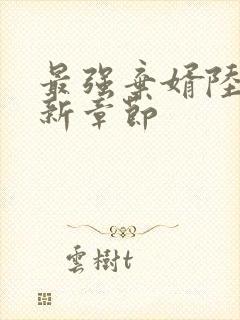 最强弃婿陸
新章節
雲樹t